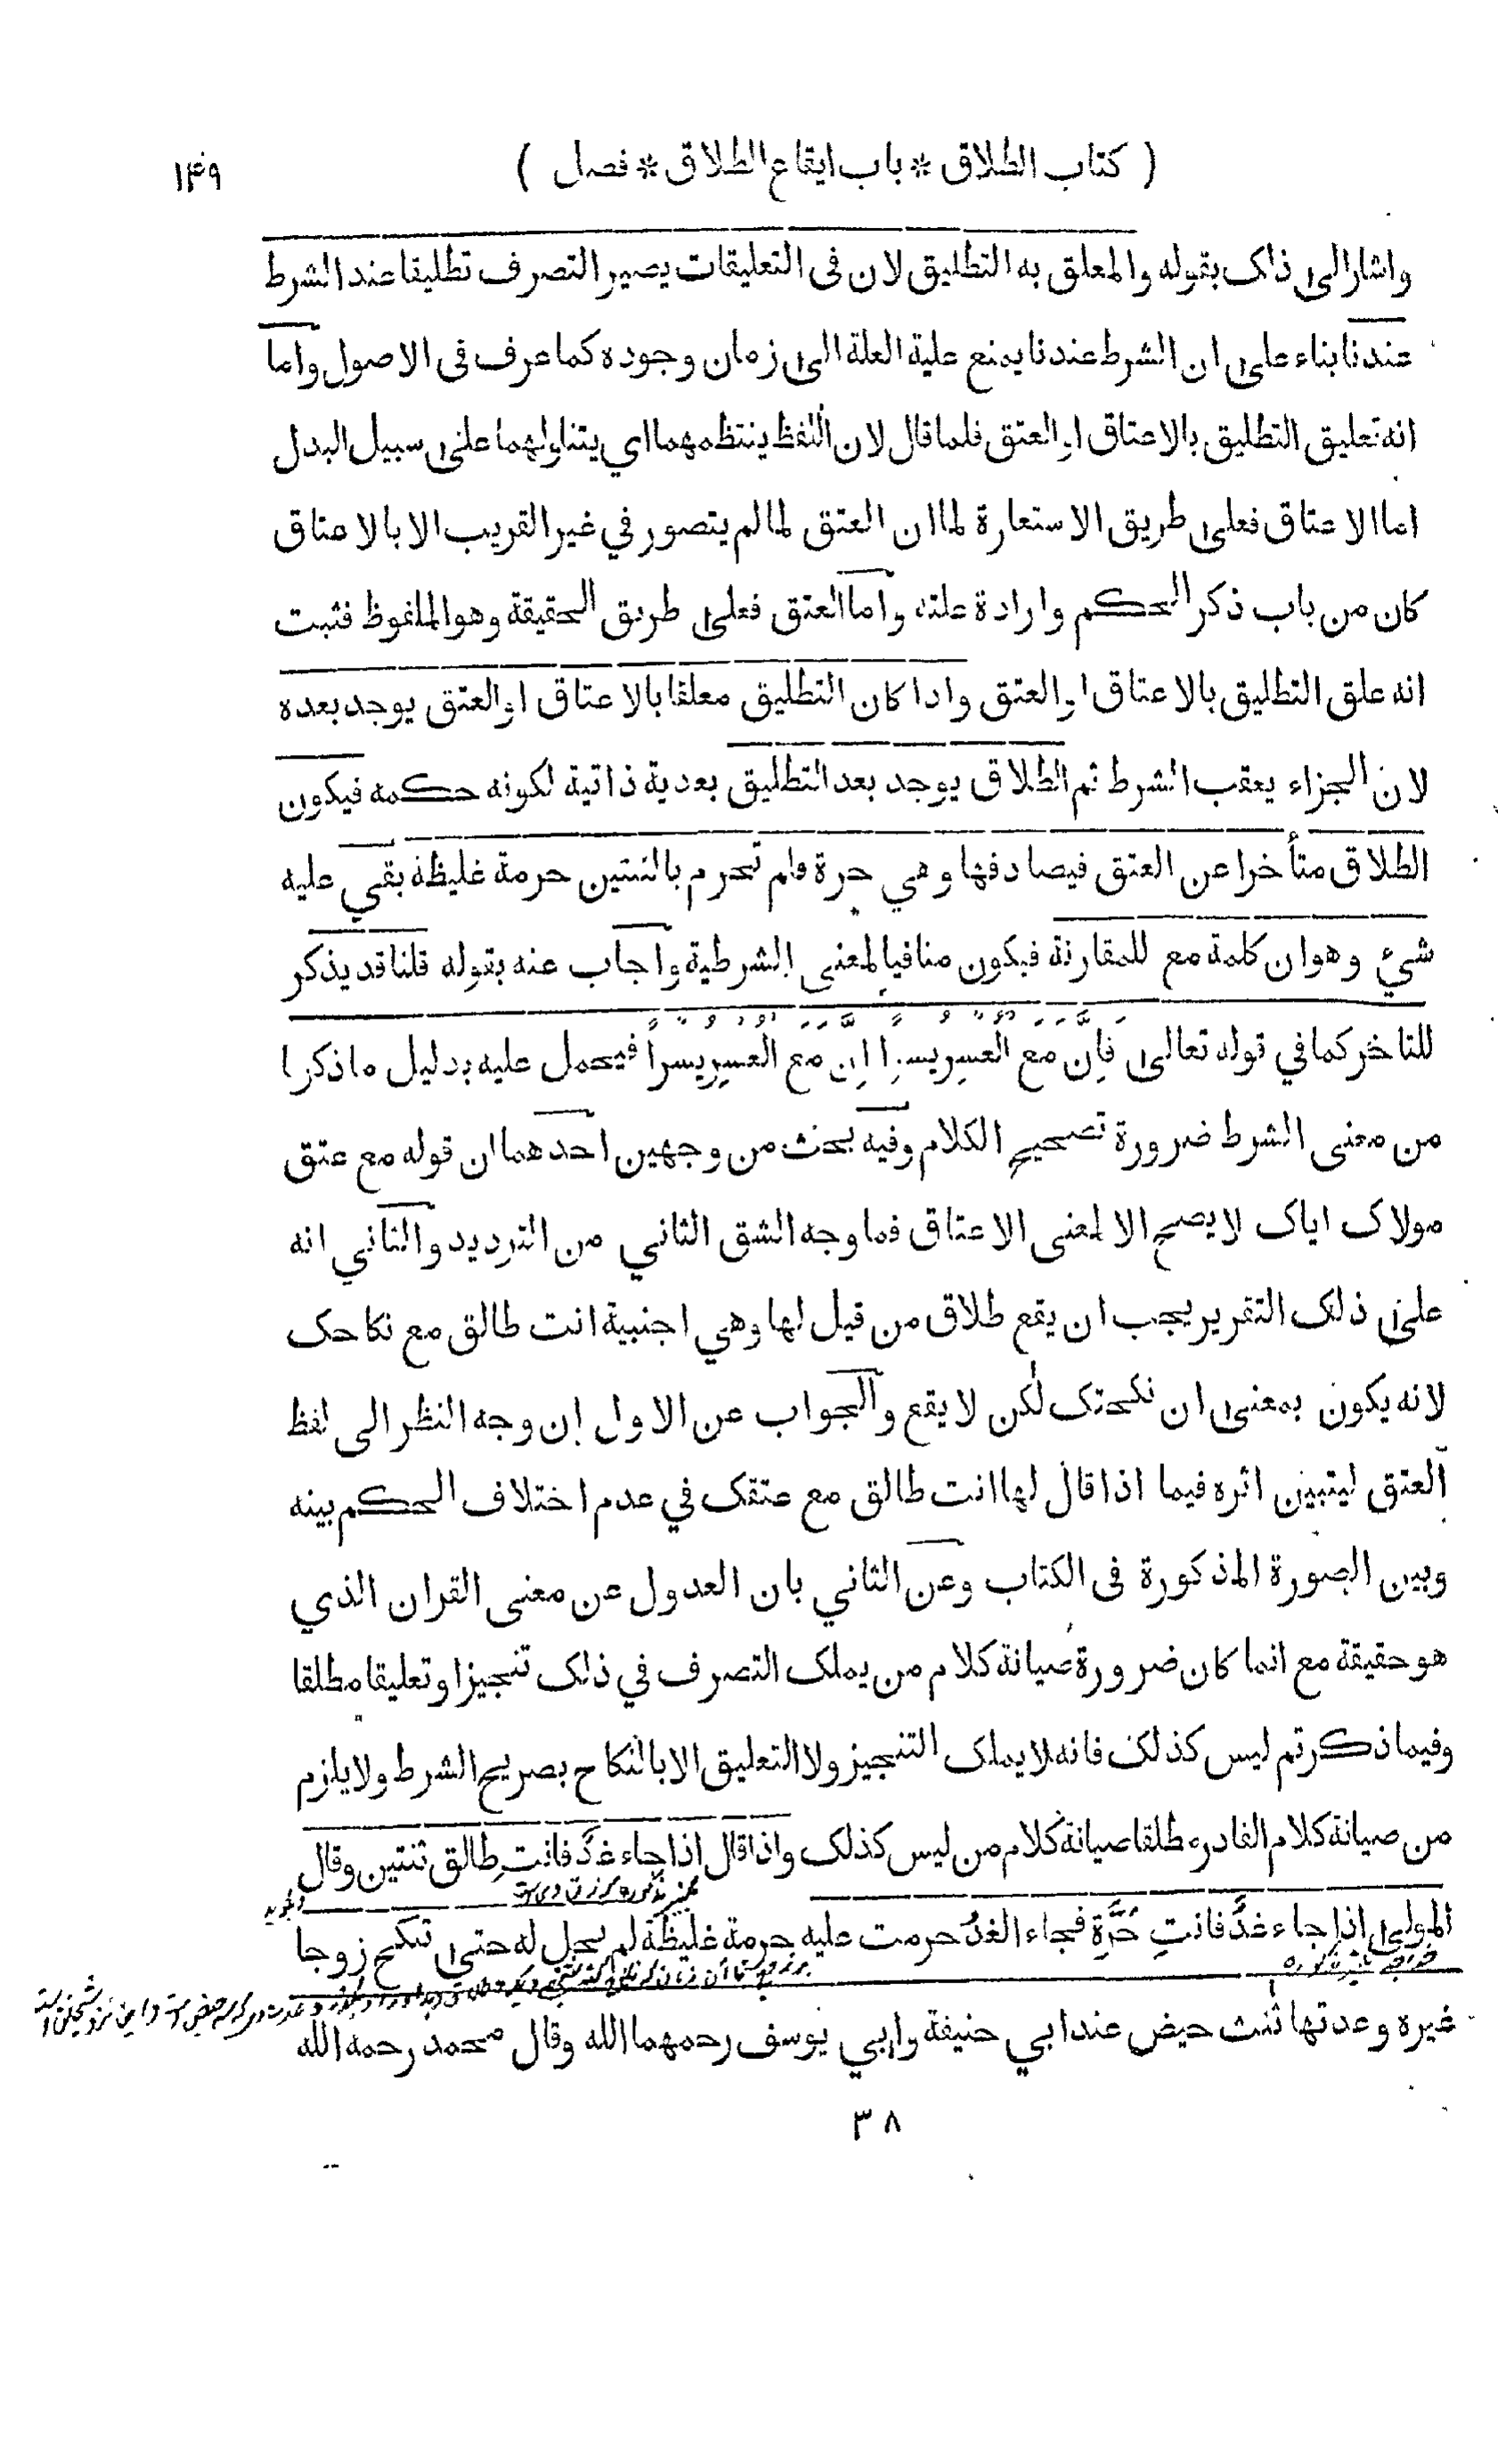 ( كتاب الطلاق * باب ايقاع الطلاق * فصل ) ١٤٩
واشار الى ذلك بقوله والمعلق به التطليق لان فى التعليقات يصير التصرف تطليقا عند الشرط
عندنا بناء على ان الشرط عندنا يمنع علية العلة الى زمان وجوده كما عرف فى الاصول واما
انه تعليق التطليق بالاعتاق او العتق فلما قال لان اللفظ ينتظمهما اي يتناولهما على سبيل البدل
اما الاعتاق فعلى طريق الاستعارة لما ان العتق لما لم يتصور في غير القريب الا بالاعتاق
كان من باب ذكر الحكم وارادة علته واما العتق فعلى طريق الحقيقة وهو الملفوظ فثبت
انه علق التطليق بالاعتاق او العتق واذا كان التطليق معلقا بالاعتاق او العتق يوجد بعده
لان الجزاء يعقب الشرط ثم الطلاق يوجد بعد التطليق بعدية ذاتية لكونه حكمه فيكون
الطلاق متأخرا عن العتق فيصادفها وهي حرة فلم تحرم بالثنتين حرمة غليظة بقي عليه
شيء وهو ان كلمة مع للمقارنة فيكون منافيا لمعنى الشرطية واجاب عنه بقوله قلنا قد يذكر
للتاخر كما في قوله تعالى فَاِنَّ مع العسرِ يسرا اِنَّ مع العسرِ يسراً فيحمل عليه بدليل ما ذكرا
من معنى الشرط ضرورة تصحيح الكلام وفيه بحث من وجهين احدهما ان قوله مع عتق
مولاك اياك لا يصح الا لمعنى الاعتاق فما وجه الشق الثاني من الترديد والثاني انه
على ذلك التقرير يجب ان يقع طلاق من قيل لها وهي اجنبية انت طالق مع نكاحك
لانه يكون بمعنى ان نكحتك لكن لا يقع والجواب عن الاول ان وجه النظر الى لفظ
العتق ليتبين اثره فيما اذا قال لها انت طالق مع عتقك في عدم اختلاف الحكم بينه
وبين الصورة المذكورة فى الكتاب وعن الثاني بان العدول عن معنى القران الذي
هو حقيقة مع انما كان ضرورة صيانة كلام من يملك التصرف في ذلك تنجيزا وتعليقا مطلقا
وفيما ذكرتم ليس كذلك فانه لا يملك التنجيز ولا التعليق الا بالنكاح بصريح الشرط ولا يلزم
من صيانة كلام القادر مطلقا صيانة كلام من ليس كذلك واذا قال اذا جاء غدٌ فانتِ طالق ثنتين وقال
المولى اذا جاء غدٌ فانتِ حُرَّة فجاء الغدُ حرمت عليه حرمة غليظة لم يحل له حتى تنكح زوجا
غيره وعدتها ثلث حيض عند ابي حنيفة وابي يوسف رحمهما الله وقال محمد رحمه الله
٣٨